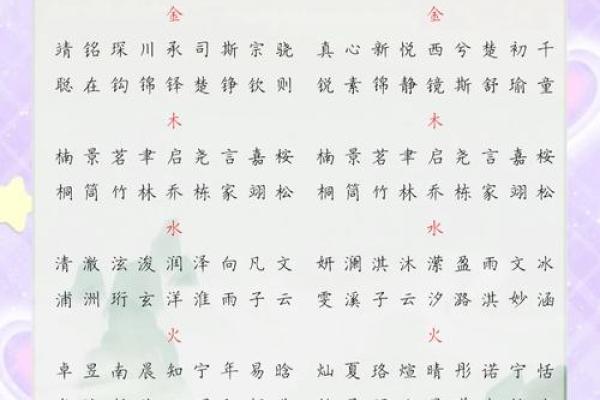 金 金
靖 铭 琛 川 承 司 斯 宗 骁 真 心 新 悦 西 兮 楚 初 千
聪 在 钩 锦 铎 楚 铮 钦 则 锐 素 锦 静 镜 斯 舒 瑜 童
木 木
楠 景 茗 聿 启 尧 言 嘉 桉 楠 景 茗 聿 启 尧 言 嘉 桉
桐 筒 竹 林 乔 栋 家 翊 松 桐 简 竹 林 乔 栋 家 翊 松
水 水
清 澈 泫 浚 润 泽 向 凡 文 妍 澜 淇 沐 潆 盈 雨 文 冰
浦 洲 珩 玄 洋 淮 雨 子 云 雯 溪 子 云 汐 潞 淇 妙 涵
火 火
卓 昱 南 晨 知 宁 年 易 晗 灿 夏 珞 煊 晴 彤 诺 宁 恬